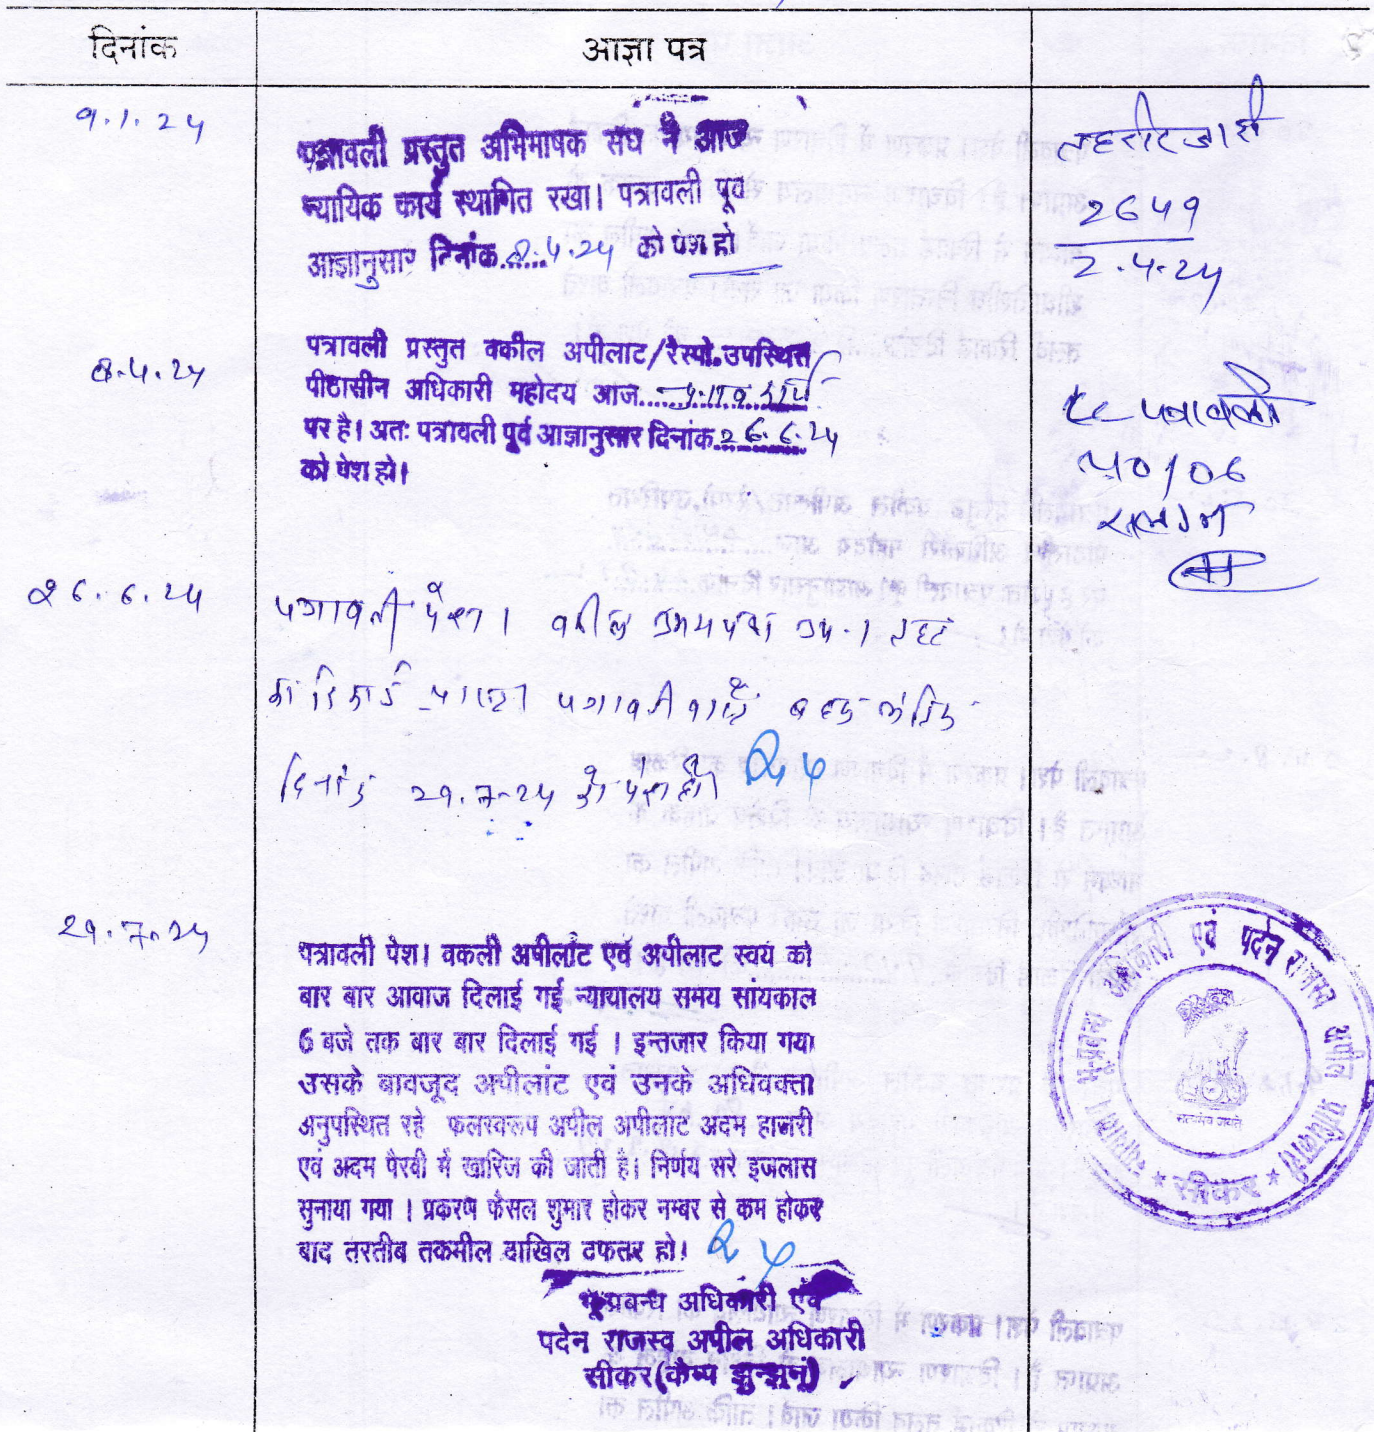 दिनांक
आज्ञा पत्र
9.1.24
पत्रावली प्रस्तुत अभिभाषक संघ ने आज
न्यायिक कार्य स्थागित रखा। पत्रावली पूर्व
आज्ञानुसार दिनांक....... 8.4.24 को पेश हो
2649
2.4.24
8.4.24
पत्रावली प्रस्तुत वकील अपीलाट/रेस्पो.उपस्थित
पीठासीन अधिकारी महोदय आज
पर है। अतः पत्रावली पूर्व आज्ञानुसार दिनांक 26.6.24
को पेश हो।
पत्रावली
40/06
संलग्न
26.6.24
पत्रावली पेश। वकील उभयपक्ष उप.।
पत्रावली वास्ते बहस
दिनांक 29.7.24 को पेश हो।
29.7.24
पत्रावली पेश। वकली अपीलांट एवं अपीलाट स्वय को
बार बार आवाज दिलाई गई न्यायालय समय सांयकाल
6 बजे तक बार बार दिलाई गई । इन्तजार किया गया
उसके बावजूद अपीलांट एवं उनके अधिवक्ता
अनुपस्थित रहे फलस्वरूप अपील अपीलाट अदम हाजरी
एवं अदम पैरवी में खारिज की जाती है। निर्णय सरे इजलास
सुनाया गया । प्रकरण फैसल शुमार होकर नम्बर से कम होकर
बाद तरतीब तकमील दाखिल दफतर हो।
भूप्रबन्ध अधिकारी एवं
पदेन राजस्व अपील अधिकारी
सीकर (कैम्प झुन्झुनूं)
भू-प्रबन्ध अधिकारी एवं पदेन राजस्व अपील प्राधिकारी
सत्यमेव जयते
* सीकर *